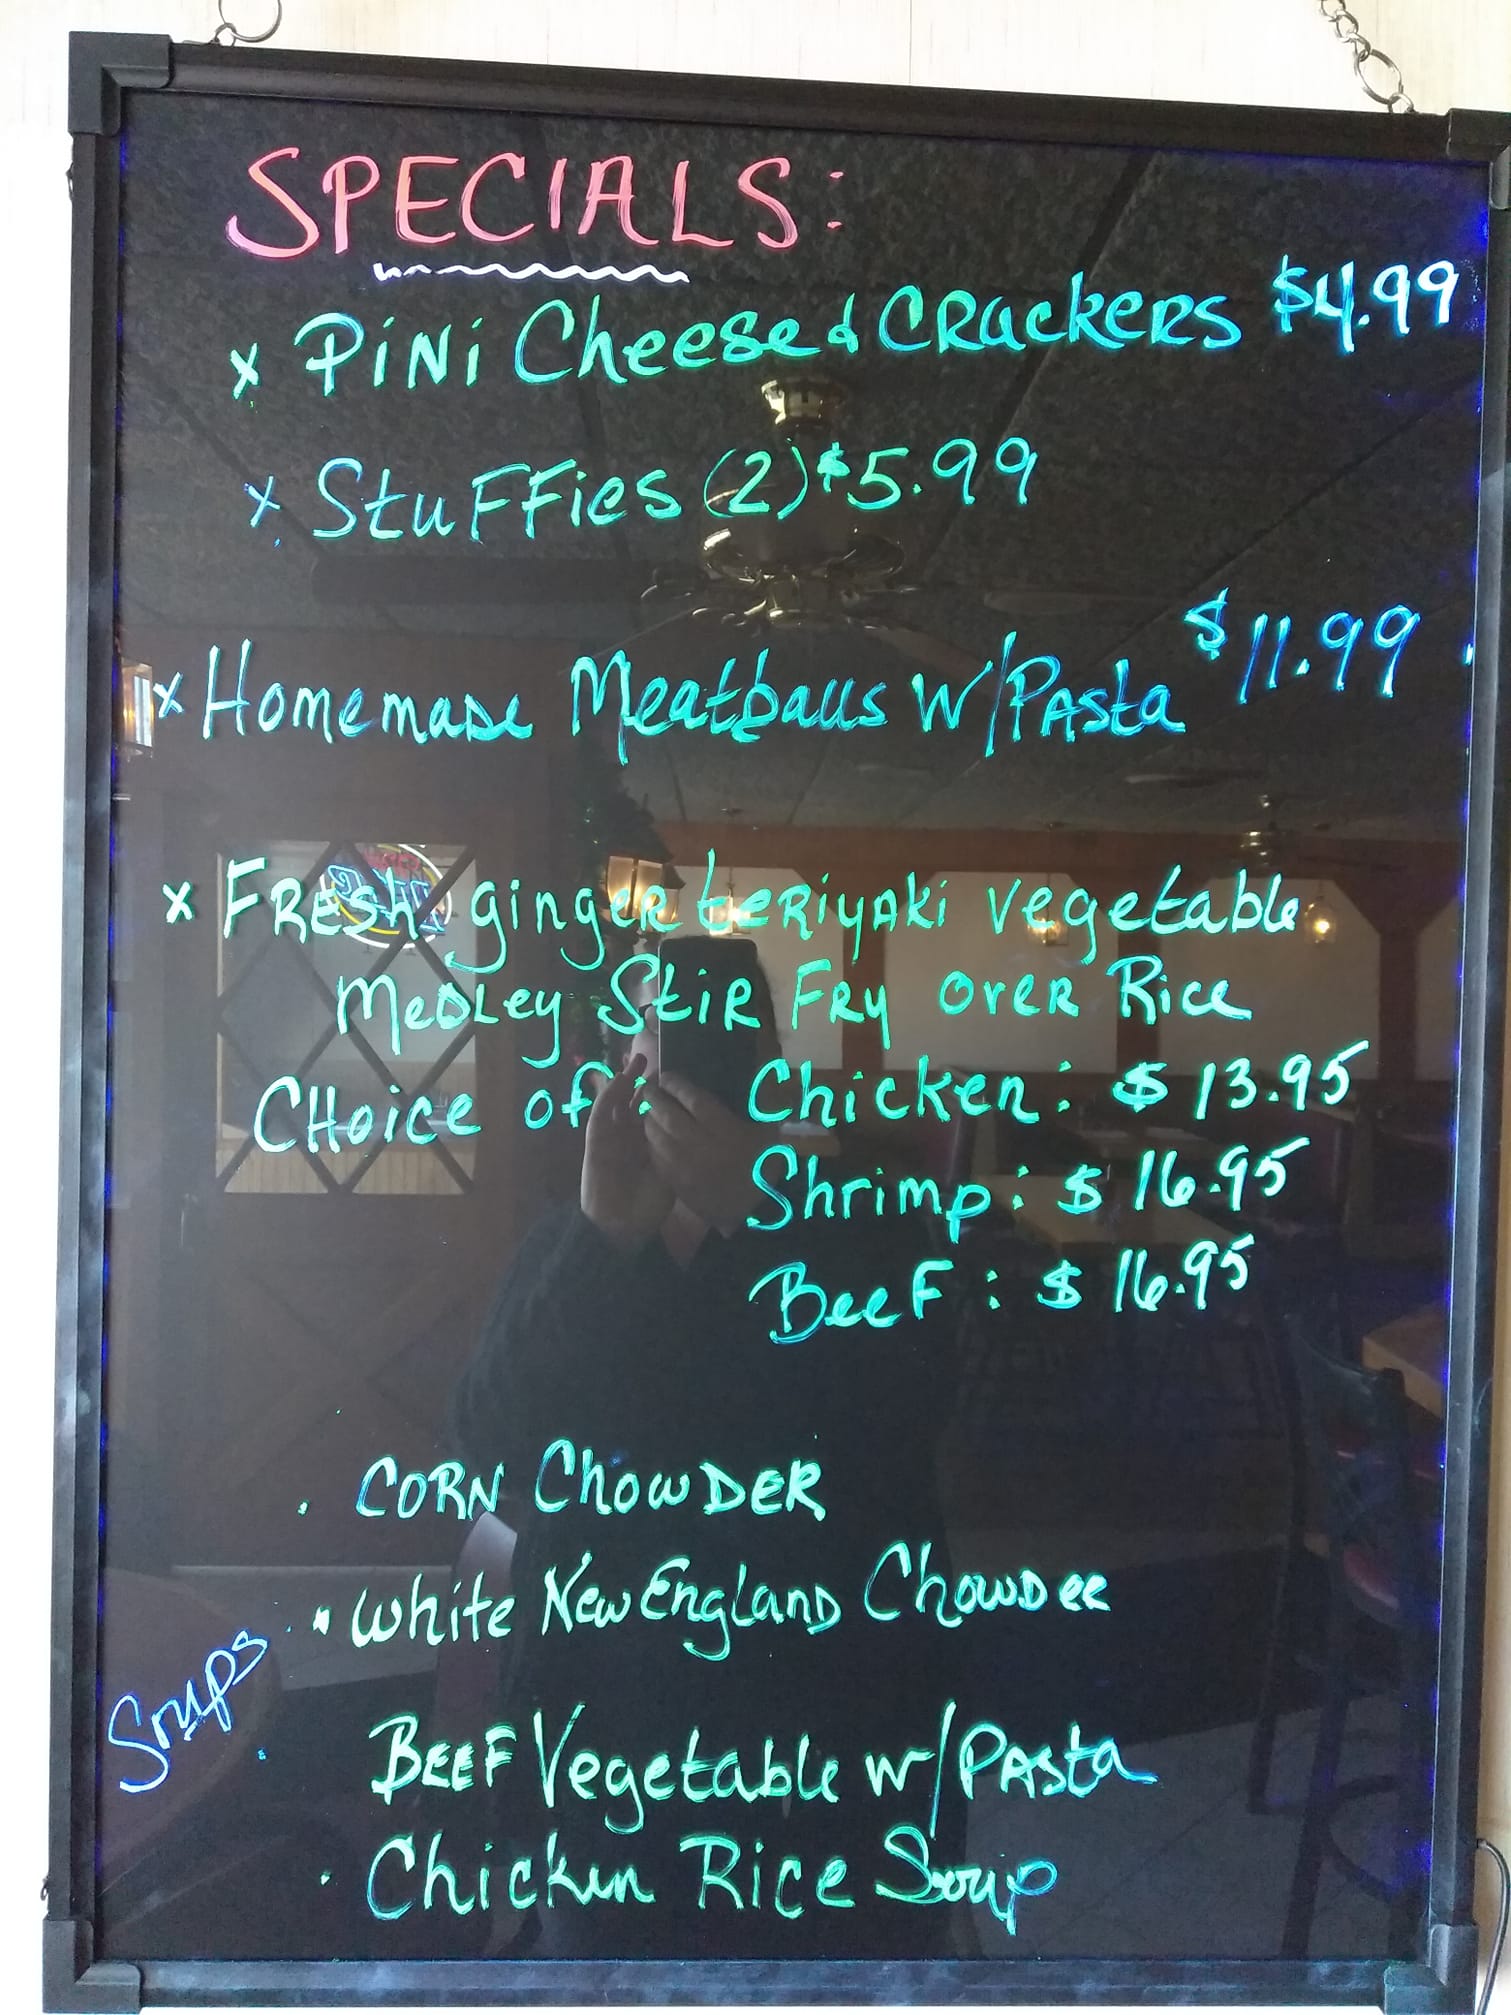 SPECIALS:
x PiNi Cheese & CRackeRs $4.99
x StuFFies (2) $5.99
x Homemade Meatballs W/Pasta $11.99
x FResh gingeR teRiyaki vegetable
MeDLey StiR FRy oveR Rice
CHoice of: Chicken: $13.95
Shrimp: $16.95
BeeF: $16.95
. CORN ChowDER
. White New ENgLAND ChowDer
Soups
BEEF Vegetable w/PAsta
. Chicken Rice Soup